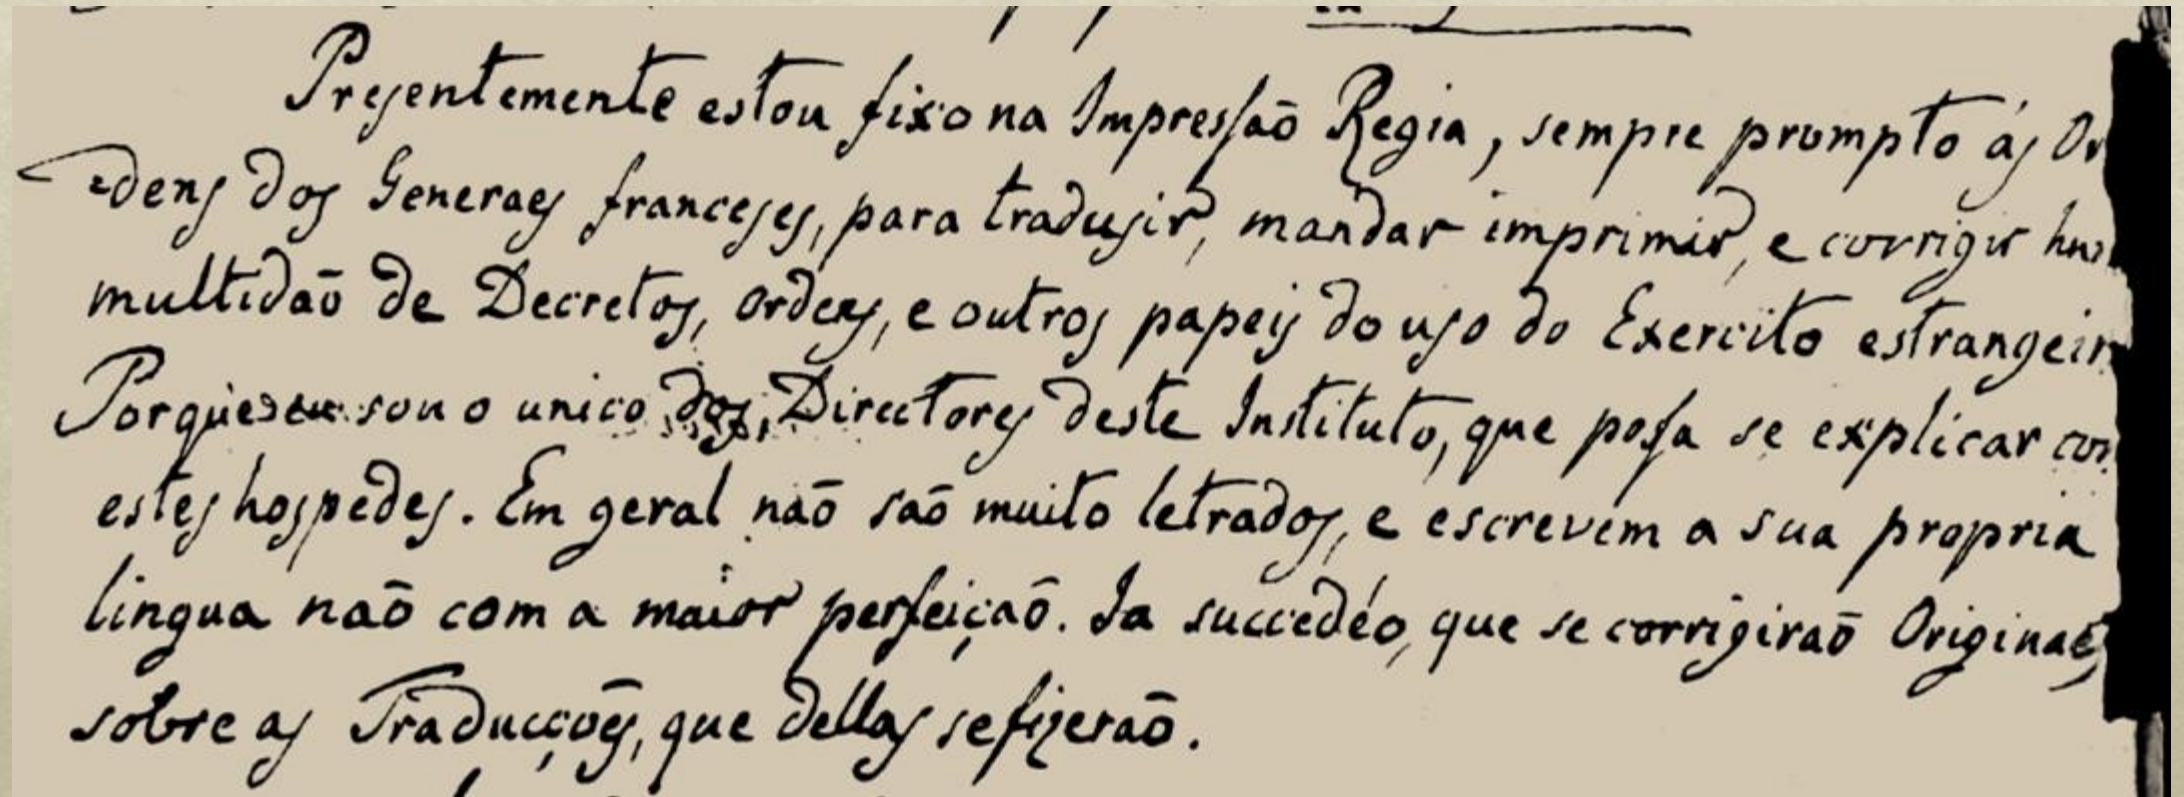 Presentemente estou fixo na Impressaõ Regia, sempre prompto ás Or
dens dos Generaes franceses, para tradusir, mandar imprimir, e corrigir hu
multidaõ de Decretos, ordeẽs, e outros papeis do uso do Exercito estrangeir
Porque eu sou o unico dos Directores deste Instituto, que possa se explicar con
estes hospedes. Em geral naõ saõ muito letrados, e escrevem a sua propria
lingua naõ com a maior perfeiçaõ. Ja succedéo, que se corrigiraõ Originaes
sobre as Traducçoẽs, que dellas se fizeraõ.